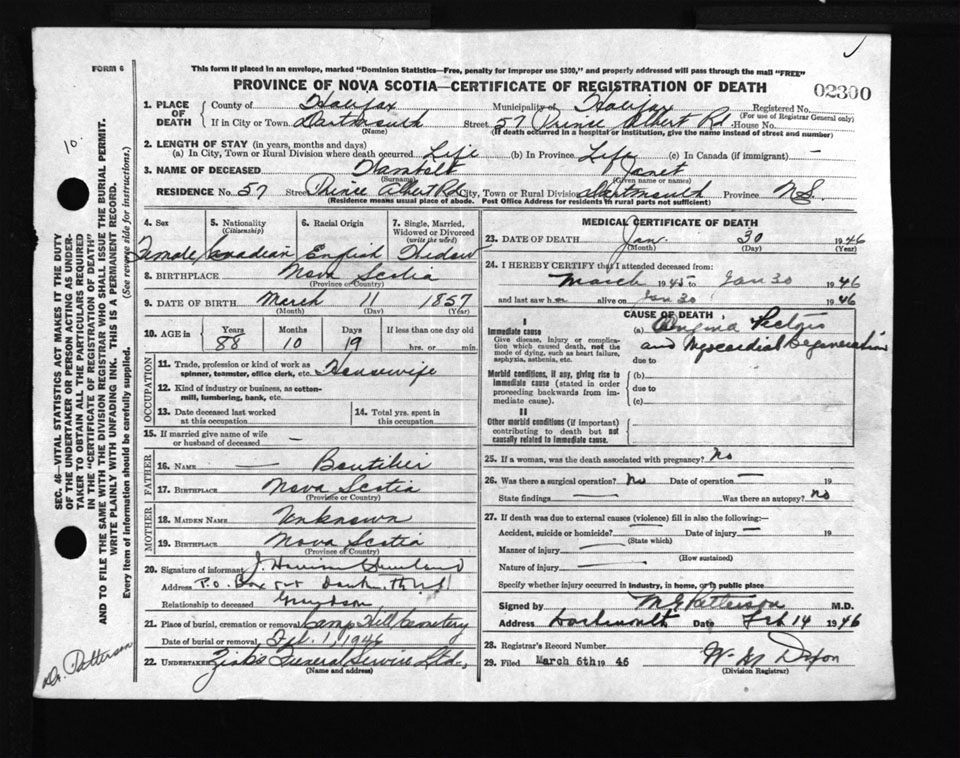 FORM 6
This form if placed in an envelope, marked "Dominion Statistics—Free, penalty for improper use $300," and properly addressed will pass through the mail "FREE"
PROVINCE OF NOVA SCOTIA—CERTIFICATE OF REGISTRATION OF DEATH
02300
1. PLACE OF DEATH
County of Halifax Municipality of Halifax Registered No.
(For use of Registrar General only)
If in City or Town Dartmouth Street 57 Prince Albert Rd. House No.
(Name) (If death occurred in a hospital or institution, give the name instead of street and number)
2. LENGTH OF STAY (in years, months and days)
(a) In City, Town or Rural Division where death occurred Life (b) In Province Life (c) In Canada (if immigrant) —
3. NAME OF DECEASED Janet
(Surname) (Given name or names)
RESIDENCE No. 57 Street Prince Albert Rd City, Town or Rural Division Dartmouth Province N.S.
(Residence means usual place of abode. Post Office Address for residents in rural parts not sufficient)
4. Sex 5. Nationality (Citizenship) 6. Racial Origin 7. Single, Married, Widowed or Divorced (write the word)
Female Canadian English Widow
8. BIRTHPLACE Nova Scotia
(Province or Country)
9. DATE OF BIRTH March 11 1857
(Month) (Day) (Year)
10. AGE in Years Months Days If less than one day old
88 10 19 hrs. or min.
OCCUPATION
11. Trade, profession or kind of work as spinner, teamster, office clerk, etc. Housewife
12. Kind of industry or business, as cotton-mill, lumbering, bank, etc.
13. Date deceased last worked at this occupation
14. Total yrs. spent in this occupation
15. If married give name of wife or husband of deceased —
FATHER
16. NAME — Boutilier
17. BIRTHPLACE Nova Scotia
(Province or Country)
MOTHER
18. MAIDEN NAME Unknown
19. BIRTHPLACE Nova Scotia
(Province of Country)
20. Signature of informant J.
Address P.O. Box
Relationship to deceased Grandson
21. Place of burial, cremation or removal Camp Hill Cemetery
Date of burial or removal, Feb. 1, 1946
22. UNDERTAKER Funeral Service Ltd.,
(Name and address)
MEDICAL CERTIFICATE OF DEATH
23. DATE OF DEATH Jan. 30 1946
(Month) (Day) (Year)
24. I HEREBY CERTIFY that I attended deceased from:
March 1945 to Jan 30 1946
and last saw her alive on Jan 30 1946
CAUSE OF DEATH
I
Immediate cause
Give disease, injury or complication which caused death, not the mode of dying, such as heart failure, asphyxia, asthenia, etc.
(a) Angina Pectoris
and Myocardial Degeneration
due to
Morbid conditions, if any, giving rise to immediate cause (stated in order proceeding backwards from immediate cause).
(b)
due to
(c)
II
Other morbid conditions (if important) contributing to death but not causally related to immediate cause.
25. If a woman, was the death associated with pregnancy? No
26. Was there a surgical operation? No Date of operation — 19
State findings — Was there an autopsy? No
27. If death was due to external causes (violence) fill in also the following:—
Accident, suicide or homicide? — Date of injury — 19
(State which)
Manner of injury —
(How sustained)
Nature of injury —
Specify whether injury occurred in industry, in home, or in public place
Signed by Patterson M.D.
Address Dartmouth Date Feb 14 1946
28. Registrar's Record Number
29. Filed March 6th 19 46
(Division Registrar)
10
SEC. 46—VITAL STATISTICS ACT MAKES IT THE DUTY
OF THE UNDERTAKER OR PERSON ACTING AS UNDER-
TAKER TO OBTAIN ALL THE PARTICULARS REQUIRED
IN THE "CERTIFICATE OF REGISTRATION OF DEATH"
AND TO FILE THE SAME WITH THE DIVISION REGISTRAR WHO SHALL ISSUE THE BURIAL PERMIT.
WRITE PLAINLY WITH UNFADING INK. THIS IS A PERMANENT RECORD.
Every item of information should be carefully supplied. (See reverse side for instructions.)
Dr. Patterson